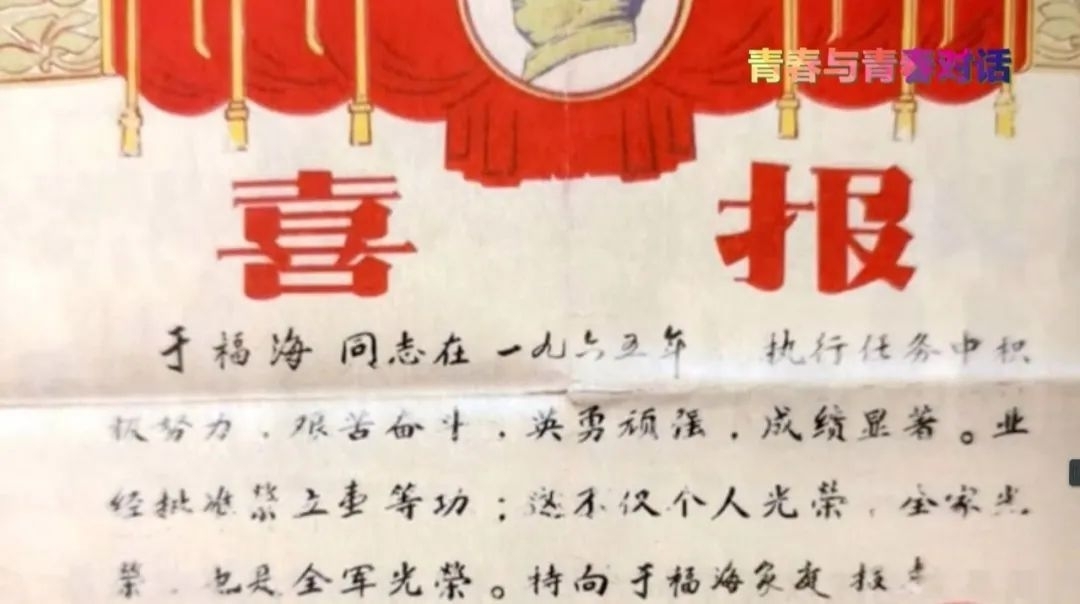 青春与青春对话
喜报
于福海 同志在 一九六五年 执行任务中积
极努力，艰苦奋斗，英勇顽强，成绩显著。业
经批准荣立壹等功；这不仅个人光荣，全家光
荣，也是全军光荣。特向于福海家庭 报